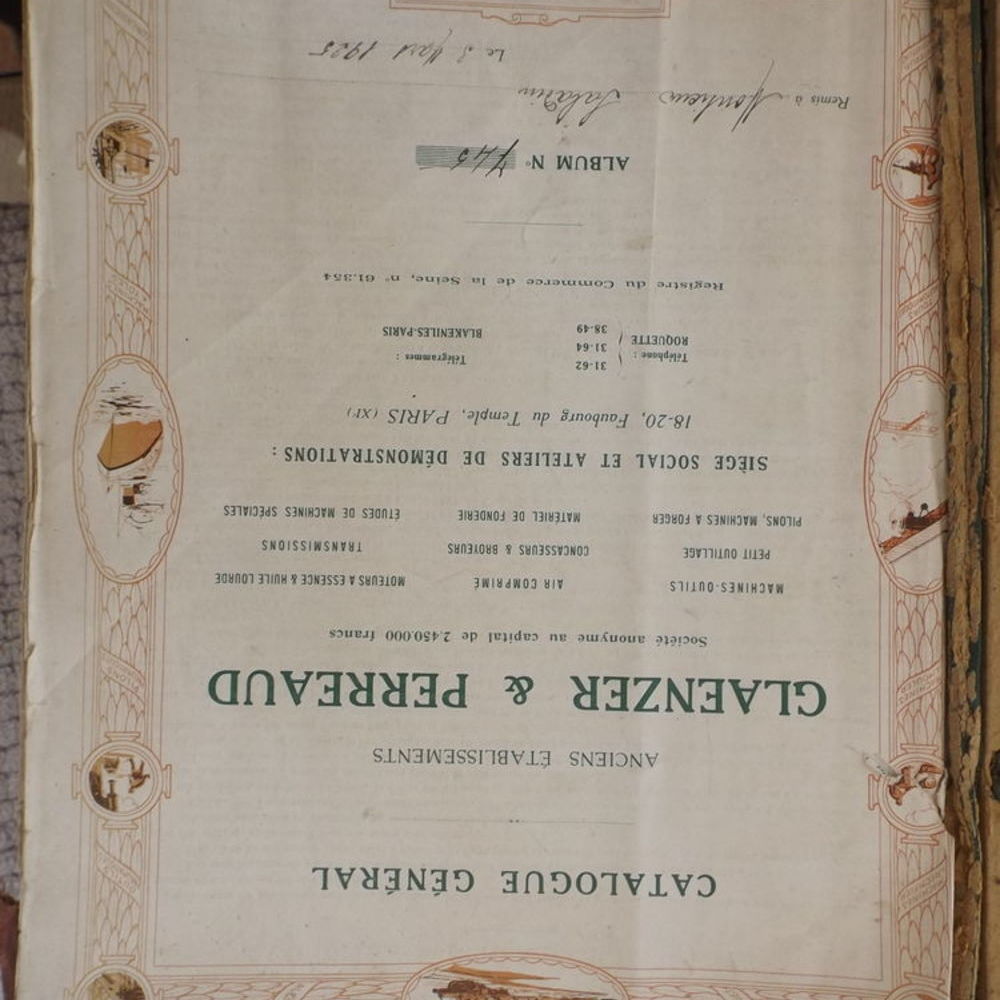 CATALOGUE GÉNÉRAL
ANCIENS ÉTABLISSEMENTS
GLAENZER & PERREAUD
Société anonyme au capital de 2.450.000 francs
MACHINES-OUTILS AIR COMPRIMÉ MOTEURS A ESSENCE & HUILE LOURDE
PETIT OUTILLAGE CONCASSEURS & BROYEURS TRANSMISSIONS
PILONS, MACHINES A FORGER MATÉRIEL DE FONDERIE ÉTUDES DE MACHINES SPÉCIALES
SIÈGE SOCIAL ET ATELIERS DE DÉMONSTRATIONS :
18-20, Faubourg du Temple, PARIS (XIe)
Téléphone : 31-62 Télégrammes :
ROQUETTE 31-64
38-49 BLAKENILES-PARIS
Registre du Commerce de la Seine, n° 61.354
ALBUM N° 745
Remis à Monsieur Saladin
Le 3 Mars 1925